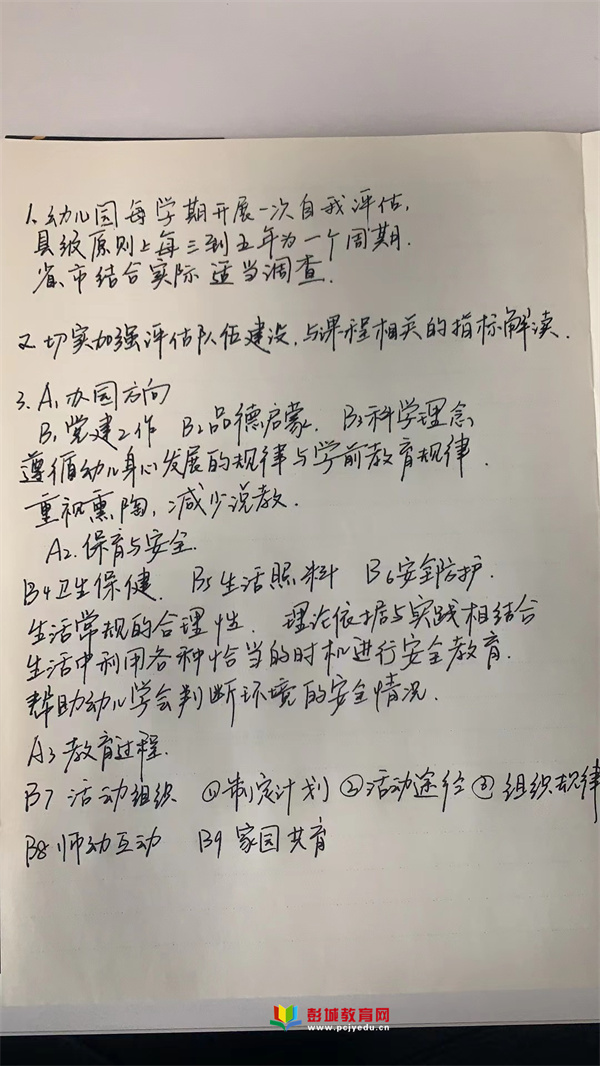 1. 幼儿园每学期开展一次自我评估,
县级原则上每三到五年为一个周期.
省、市结合实际适当调查.
2. 切实加强评估队伍建设,与课程相关的指标解读.
3. A1办园方向
B1党建工作 B2品德启蒙. B3科学理念
遵循幼儿身心发展的规律与学前教育规律.
重视熏陶,减少说教.
A2.保育与安全.
B4卫生保健. B5生活照料 B6安全防护.
生活常规的合理性. 理论依据与实践相结合
生活中利用各种恰当的时机进行安全教育.
帮助幼儿学会判断环境的安全情况.
A3教育过程.
B7活动组织 ①制定计划 ②活动途径 ③组织规律
B8师幼互动 B9家园共育
彭城教育网
www.pcjyedu.cn